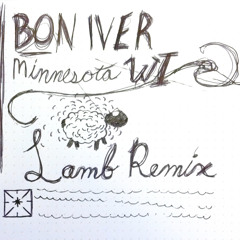 BON IVER
Minnesota WI
Lamb Remix